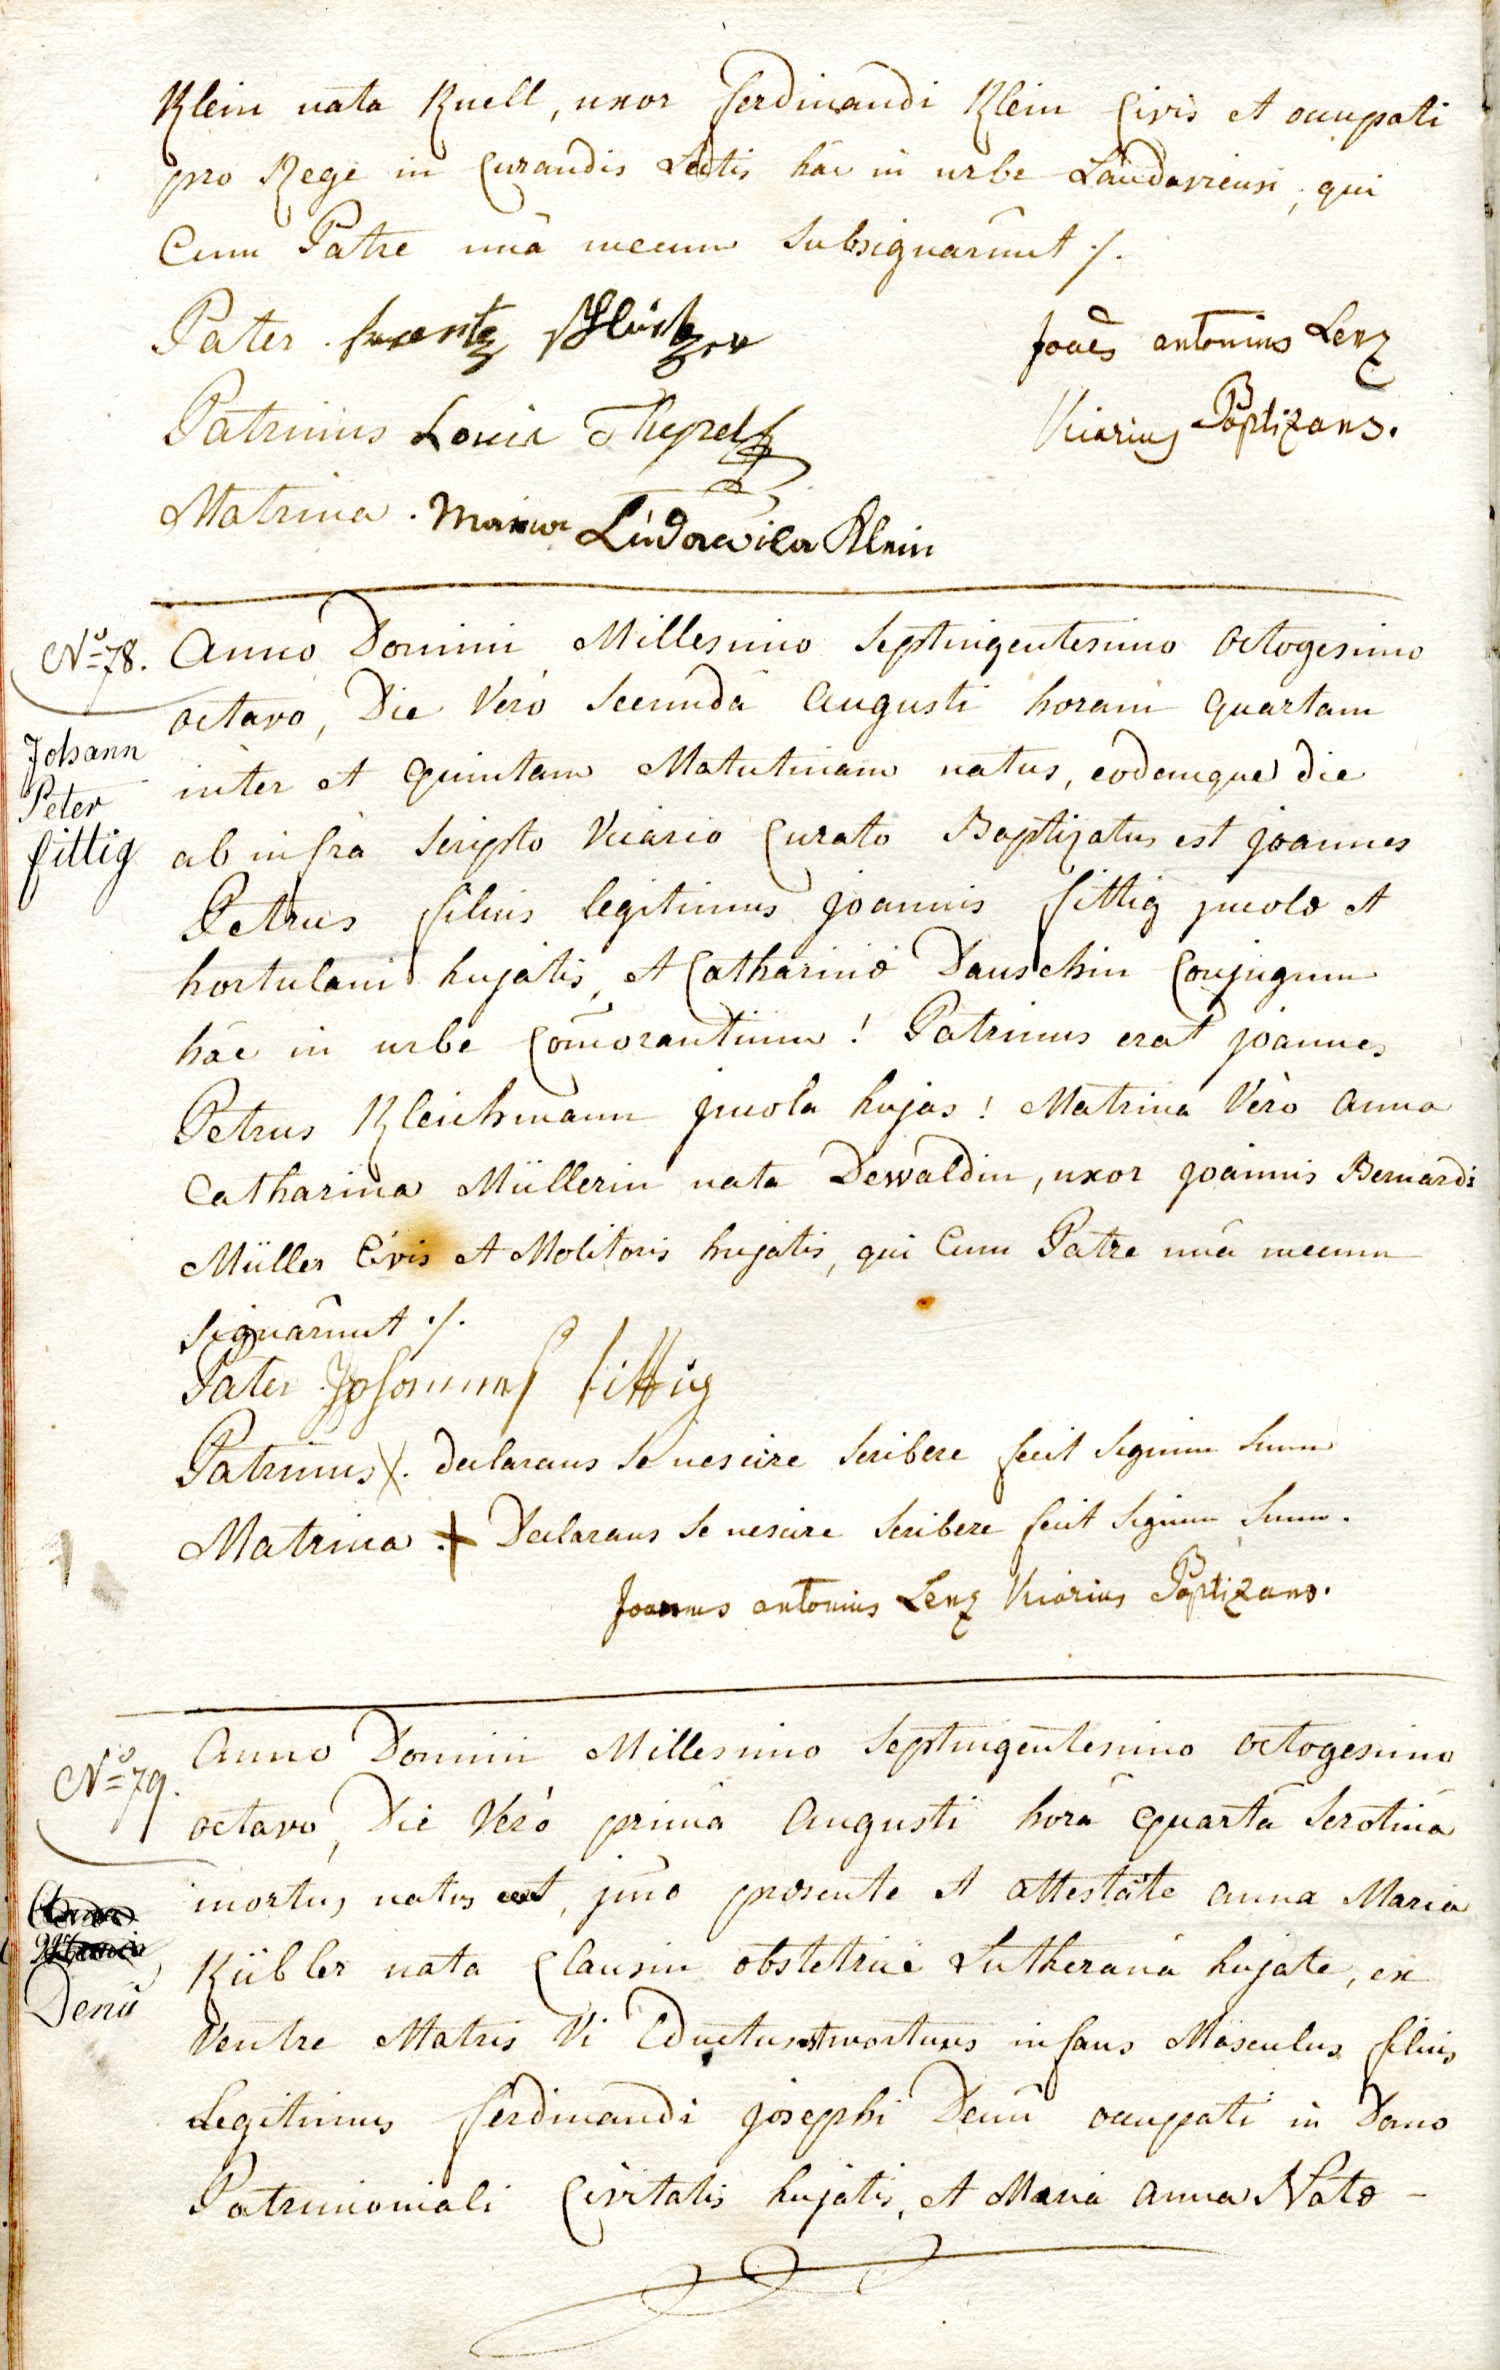 Klein nata Knell, uxor ferdinandi Klein Civis et occupati
pro Rege in Curandis Lectis hâc in urbe Landaviensi, qui
Cum Patre unâ mecum Subsignarunt ./.
Pater frantz
Joaēs antonius Lenz
Patrinus Louis
Vicarius Baptizans.
Matrina . Maria Ludowica Klein
No 78. Anno Domini Millesimo Septingentesimo Octogesimo
octavo, Die Verò Secundâ Augusti horam quartam
Johann
inter et quintam Matutinam natus, eodemque die
Peter
fittig
ab infrà Scripto Vicario Curato Baptizatus est Joannes
Petrus filius legitimus Joannis fittig incolæ et
hortulani hujatis, et Catharinæ Dauschin Conjugum
hâc in urbe Com̄orantium ! Patrinus erat Joannes
Petrus Kleichmann incola hujas ! Matrina Verò Anna
Catharina Müllerin nata Dewaldin, uxor Joannis Bernardi
Müller Civis et Molitoris hujatis, qui Cum Patre unâ mecum
Signarunt ./.
Pater Johannes fittig
Patrinus X. declarans Se nescire Scribere fecit Signum Suum
Matrina . + Declarans Se nescire Scribere fecit Signum Suum.
Joannes antonius Lenz Vicarius Baptizans.
No 79. Anno Domini Millesimo Septingentesimo Octogesimo
octavo, Die Verò primâ Augusti horâ quartâ Serotinâ
mortuus natus est, imò præsente et attestante Anna Maria
Anna
Maria
Denū
Kübler nata Clausin obstetrice Lutheranâ hujate, ex
Ventre Matris Vi Eductus et mortuus infans Masculus filius
Legitimus ferdinandi Josephi Denū occupati in Domo
Patrimoniali Civitatis hujatis, et Maria Anna Natæ -